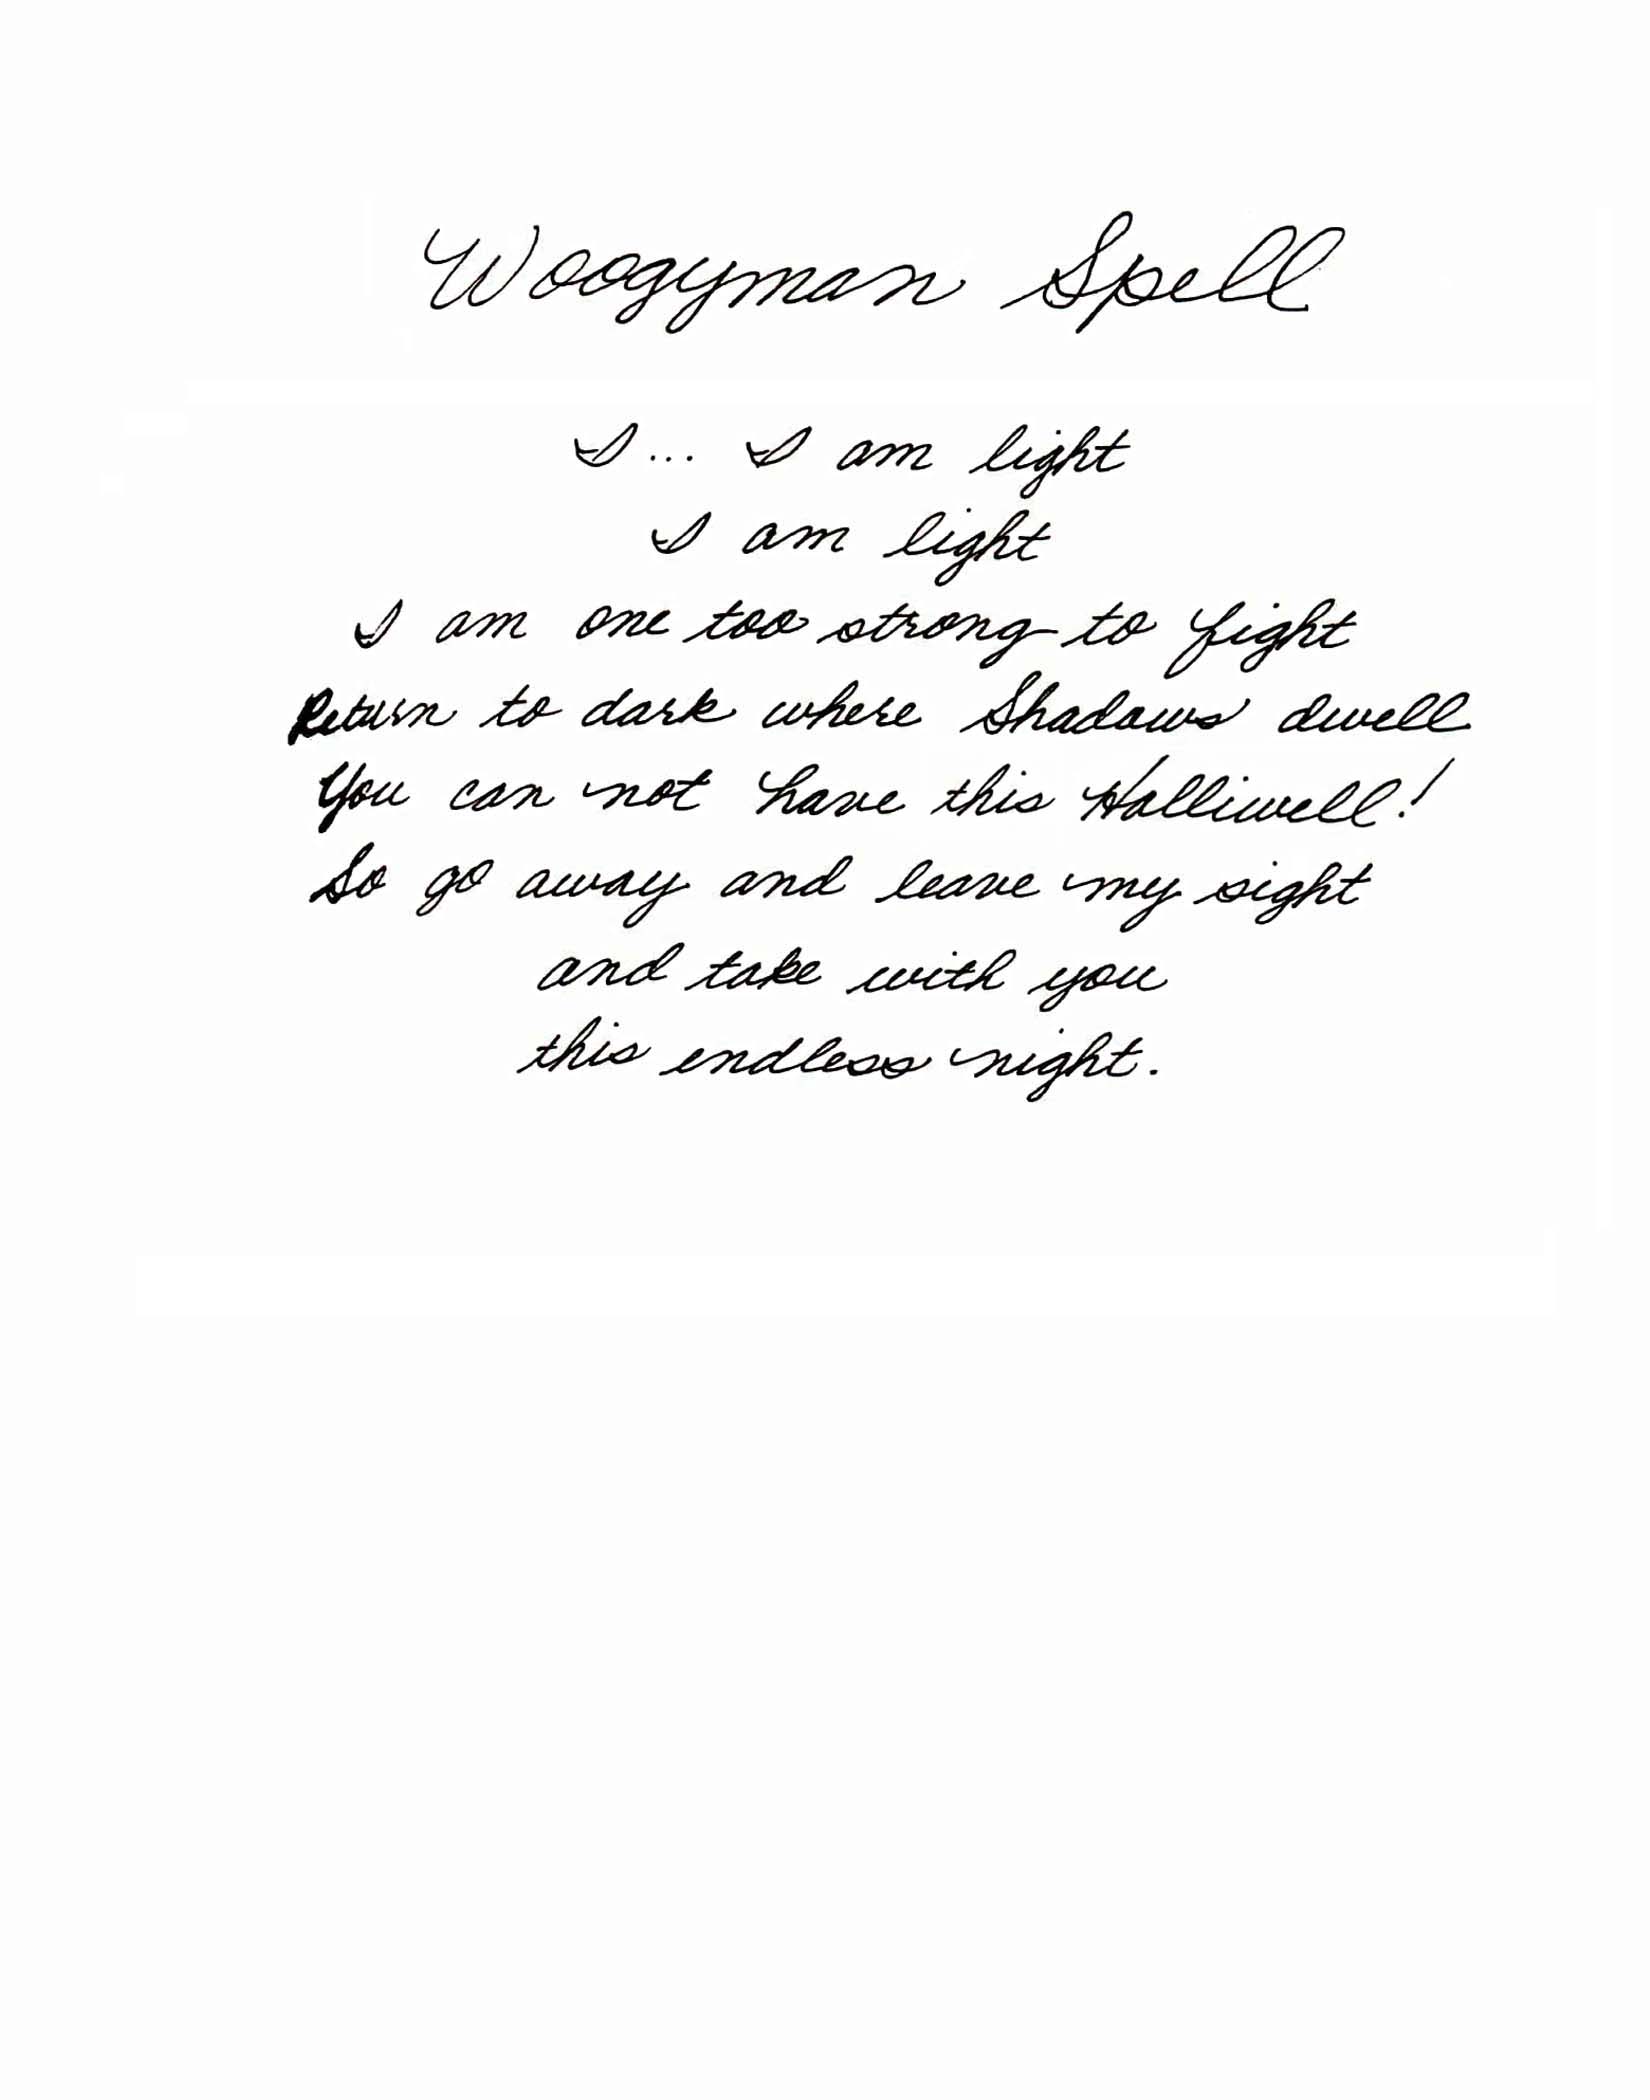 Woogyman Spell
I... I am light
I am light
I am one too strong to fight
Return to dark where Shadows dwell
You can not have this Halliwell!
So go away and leave my sight
and take with you
this endless night.